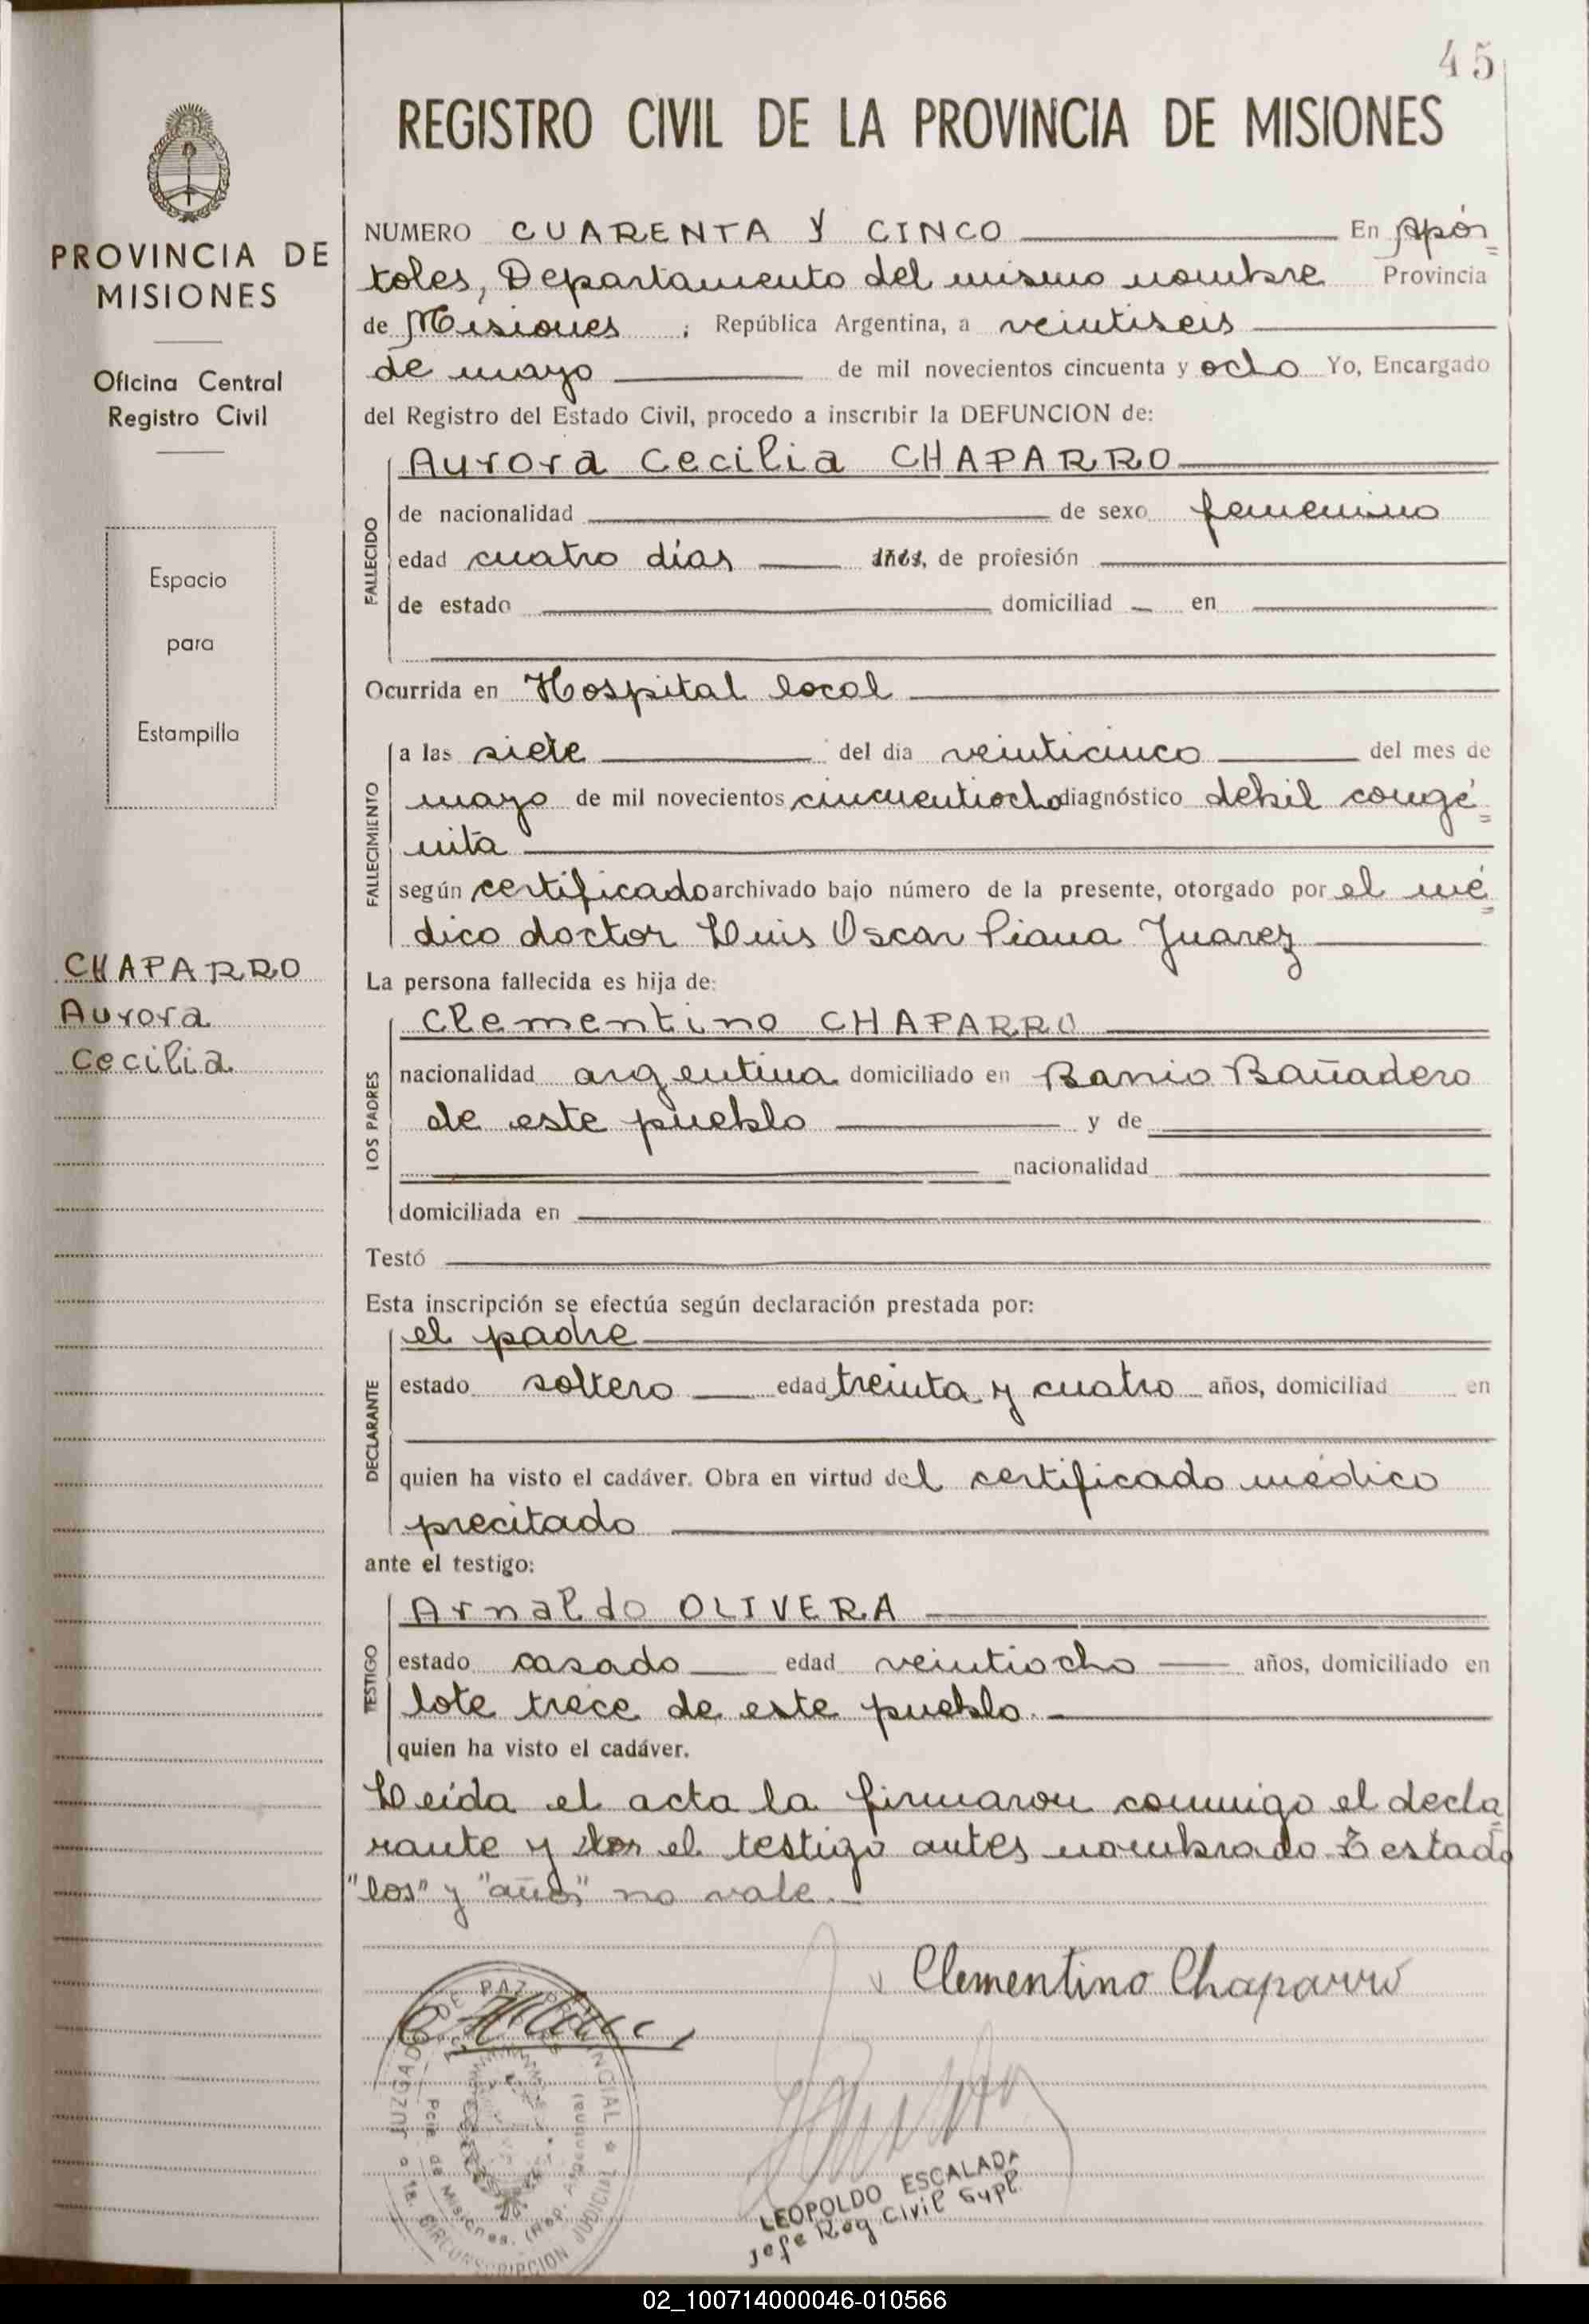 45
REGISTRO CIVIL DE LA PROVINCIA DE MISIONES
PROVINCIA DE
MISIONES
Oficina Central
Registro Civil
Espacio
para
Estampilla
CHAPARRO
Aurora
Cecilia
NUMERO CUARENTA Y CINCO En Após
toles, Departamento del mismo nombre Provincia
de Misiones, República Argentina, a veintiseis
de mayo de mil novecientos cincuenta y ocho Yo, Encargado
del Registro del Estado Civil, procedo a inscribir la DEFUNCION de:
Aurora Cecilia CHAPARRO
FALLECIDO
de nacionalidad de sexo femenino
edad cuatro días años, de profesión
de estado domiciliad en
Ocurrida en Hospital local
FALLECIMIENTO
a las siete del dia veinticinco del mes de
mayo de mil novecientos cincuentiocho diagnóstico debil congé=
nita
según certificado archivado bajo número de la presente, otorgado por el mé=
dico doctor Luis Oscar Piana Juarez
La persona fallecida es hija de:
LOS PADRES
Clementino CHAPARRO
nacionalidad argentina domiciliado en Barrio Bañadero
de este pueblo y de
nacionalidad
domiciliada en
Testó
Esta inscripción se efectúa según declaración prestada por:
DECLARANTE
el padre
estado soltero edad treinta y cuatro años, domiciliad en
quien ha visto el cadáver. Obra en virtud del certificado médico
precitado
ante el testigo:
TESTIGO
Arnaldo OLIVERA
estado casado edad veintiocho años, domiciliado en
lote trece de este pueblo.
quien ha visto el cadáver.
Leída el acta la firmaron conmigo el decla=
rante y los el testigo antes nombrado. Testado
"los" y "años" no vale.
Clementino Chaparro
JUZGADO DE PAZ PROVINCIAL
Pcia. de Misiones. (Rep. Argentina)
1a. CIRCUNSCRIPCION JUDICIAL
LEOPOLDO ESCALADA
Jefe Reg Civil Supl.
02_100714000046-010566